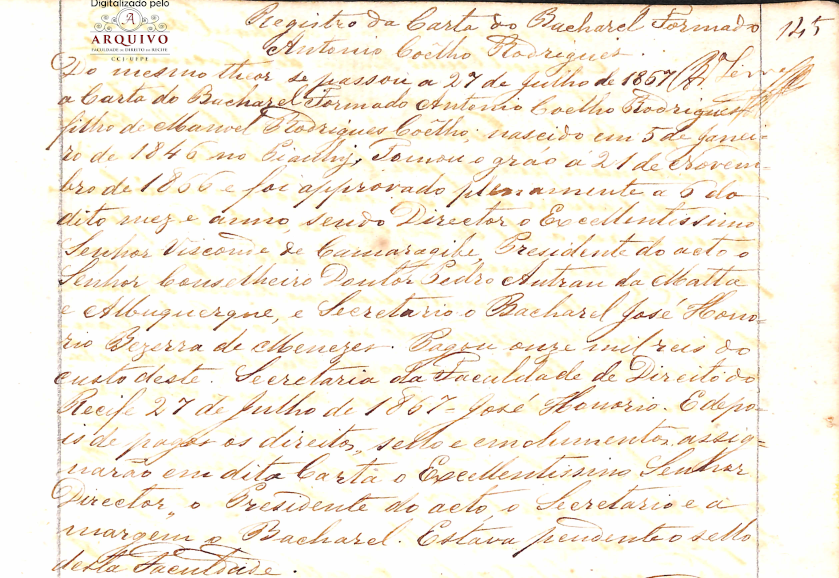 Digitalizado pelo
ARQUIVO
FACULDADE DE DIREITO DO RECIFE
CCJ-UFPE
Registro da Carta do Bacharel Formado
Antonio Coêlho Rodrigues.
125
Do mesmo theor se passou a 27 de Julho de 1867
a Carta do Bacharel Formado Antonio Coelho Rodrigues,
filho de Manoel Rodrigues Coêlho; nascido em 5 de Janei-
ro de 1846 no Piauhy, Tomou o gráo a 21 de Novem-
bro de 1866 e foi approvado plenamente a 6 do
dito mez e anno, sendo Director o Excellentissimo
Senhor Visconde de Camaragibe, Presidente do acto o
Senhor Conselheiro Doutor Pedro Autran da Matta
e Albuquerque, e Secretario o Bacharel José Hono-
rio Bezerra de Menezes. Pagou onze mil reis do
custo deste. Secretaria da Faculdade de Direito do
Recife 27 de Julho de 1867 - José Honorio. E depo-
is de pagos os direitos, sello e emolumentos, assig-
narão em dita Carta o Excellentissimo Senhor
Director, o Presidente do acto, o Secretario e a
margem o Bacharel. Estava pendente o sello
desta Faculdade.